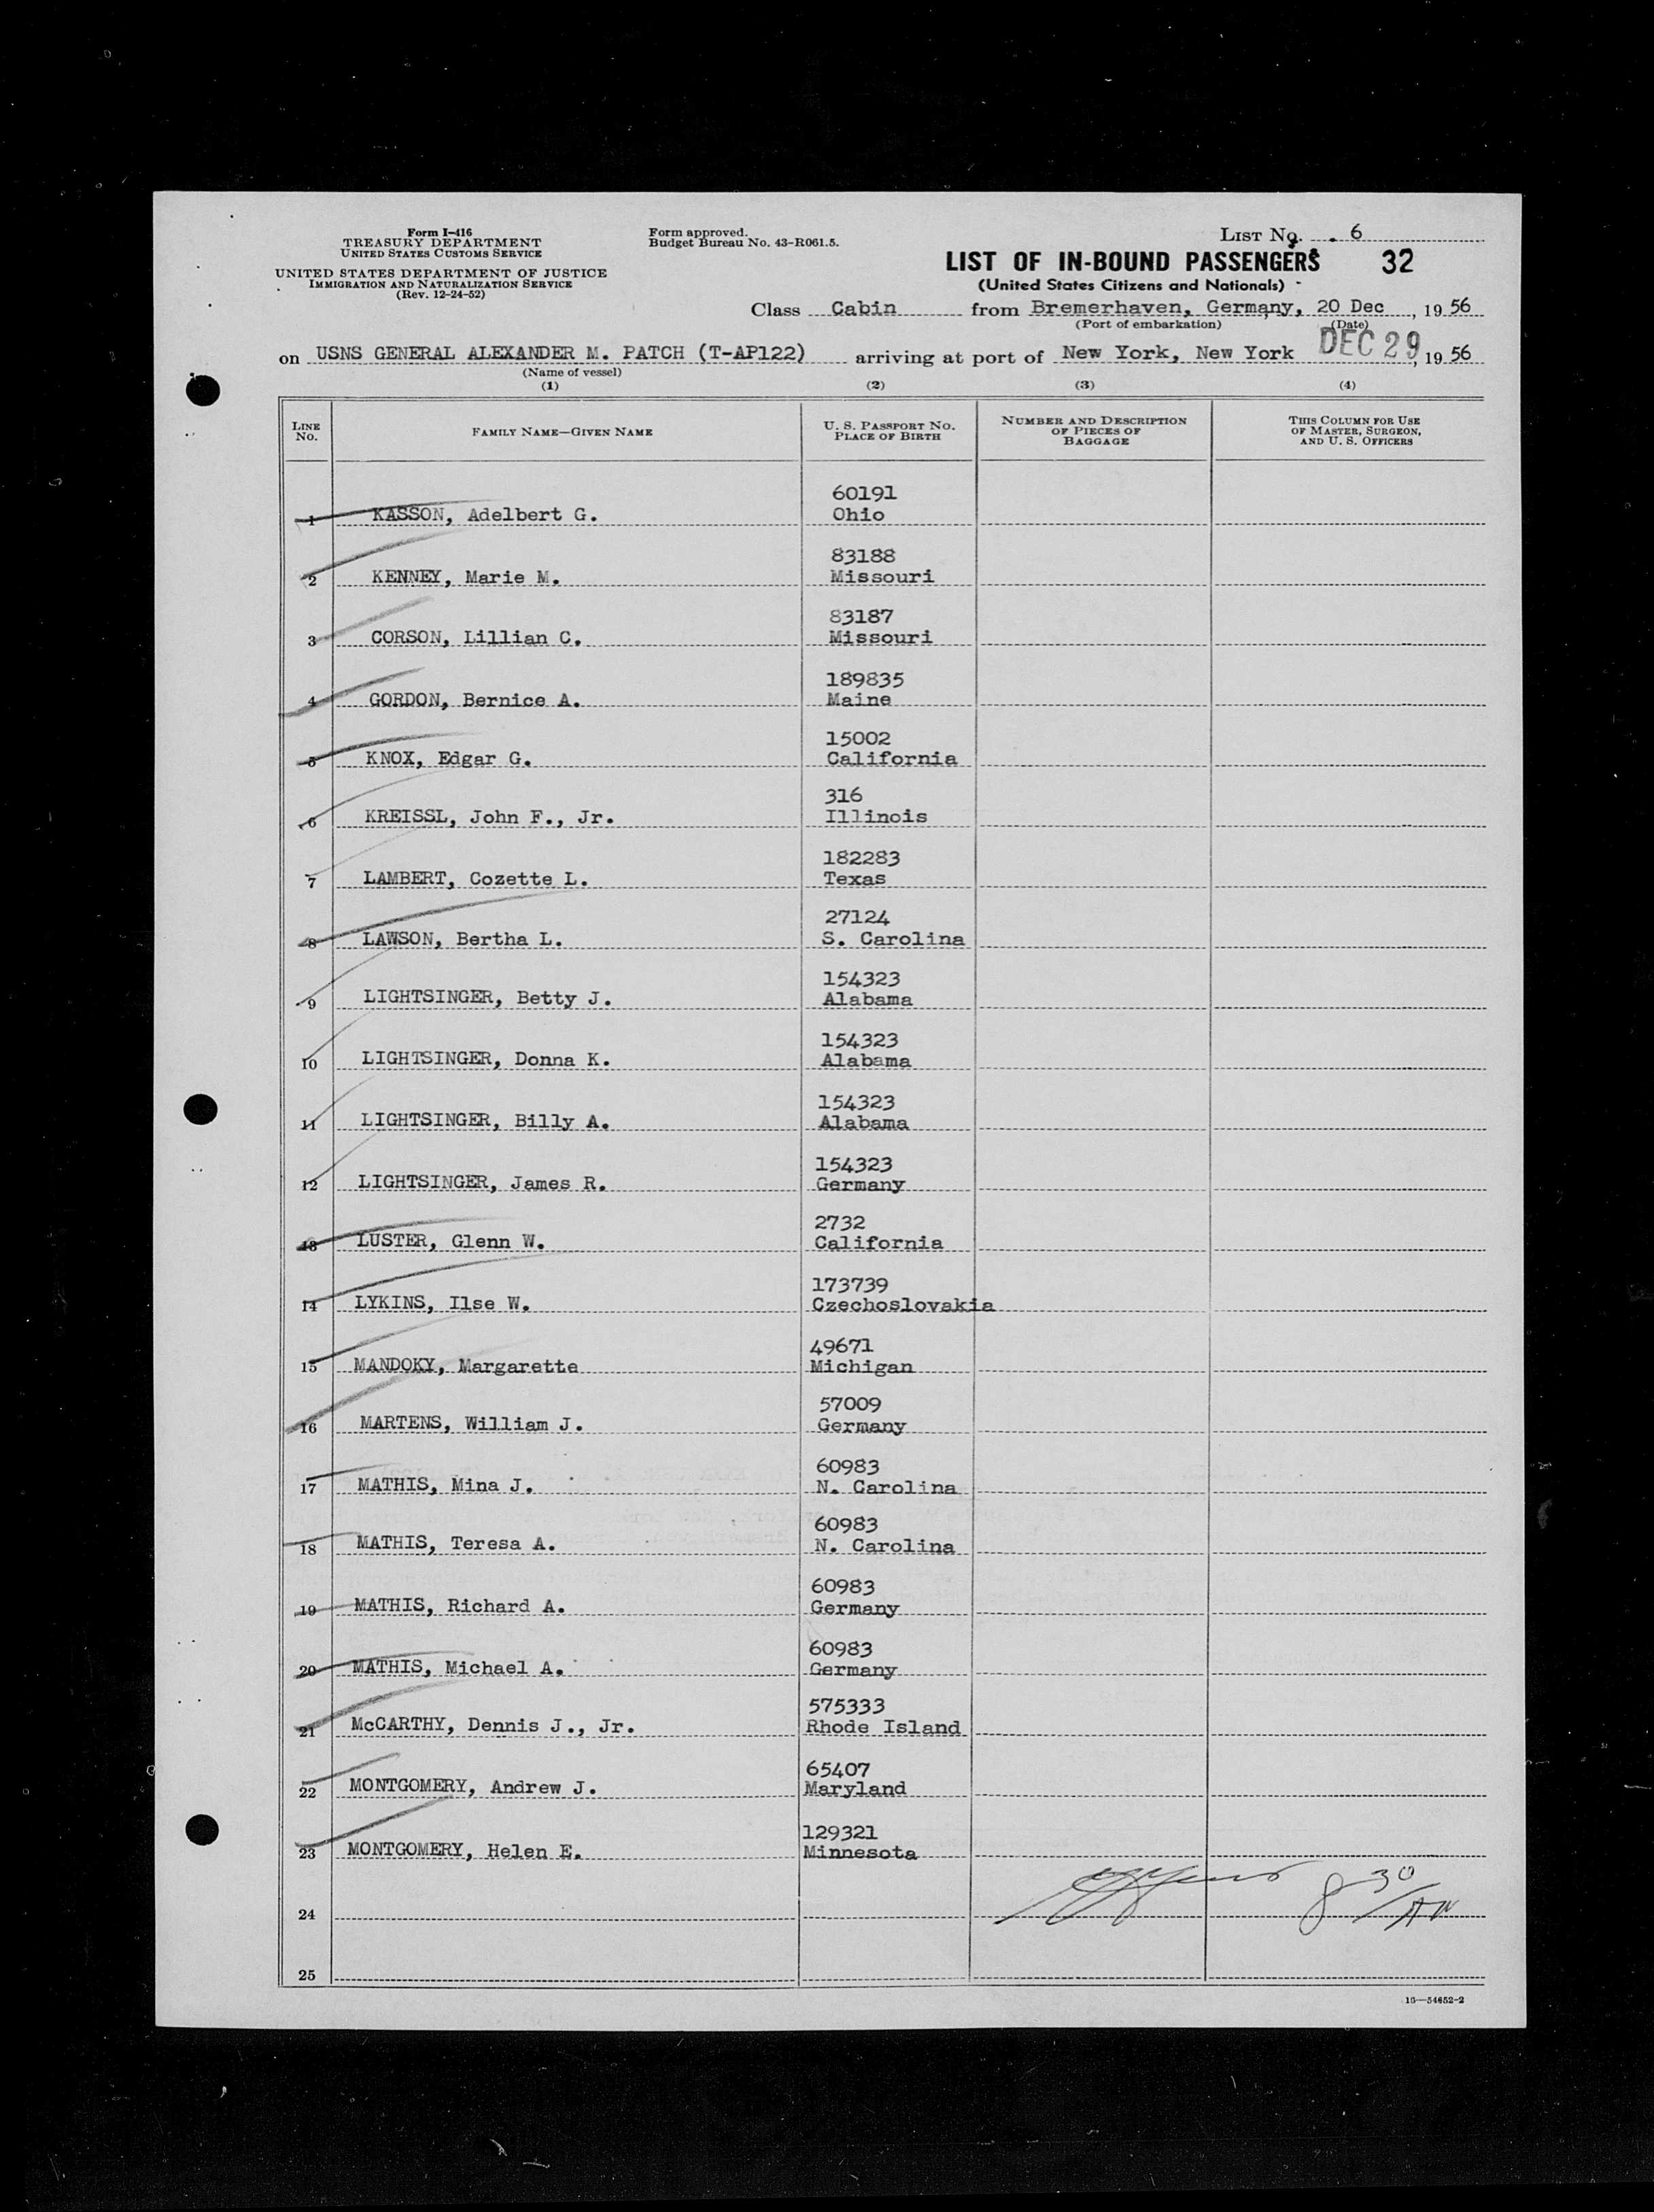 Form I-416
TREASURY DEPARTMENT
UNITED STATES CUSTOMS SERVICE
UNITED STATES DEPARTMENT OF JUSTICE
IMMIGRATION AND NATURALIZATION SERVICE
(Rev. 12-24-52)
Form approved.
Budget Bureau No. 43-R061.5.
LIST No. 6
LIST OF IN-BOUND PASSENGERS 32
(United States Citizens and Nationals)
Class Cabin from Bremerhaven, Germany, 20 Dec, 1956
(Port of embarkation) (Date)
on USNS GENERAL ALEXANDER M. PATCH (T-AP122) arriving at port of New York, New York DEC 29, 1956
(Name of vessel)
(1) (2) (3) (4)
LINE No. FAMILY NAME—GIVEN NAME U. S. PASSPORT No. PLACE OF BIRTH NUMBER AND DESCRIPTION OF PIECES OF BAGGAGE THIS COLUMN FOR USE OF MASTER, SURGEON, AND U. S. OFFICERS
60191
1 KASSON, Adelbert G. Ohio
83188
2 KENNEY, Marie M. Missouri
83187
3 CORSON, Lillian C. Missouri
189835
4 GORDON, Bernice A. Maine
15002
5 KNOX, Edgar G. California
316
6 KREISSL, John F., Jr. Illinois
182283
7 LAMBERT, Cozette L. Texas
27124
8 LAWSON, Bertha L. S. Carolina
154323
9 LIGHTSINGER, Betty J. Alabama
154323
10 LIGHTSINGER, Donna K. Alabama
154323
11 LIGHTSINGER, Billy A. Alabama
154323
12 LIGHTSINGER, James R. Germany
2732
13 LUSTER, Glenn W. California
173739
14 LYKINS, Ilse W. Czechoslovakia
49671
15 MANDOKY, Margarette Michigan
57009
16 MARTENS, William J. Germany
60983
17 MATHIS, Mina J. N. Carolina
60983
18 MATHIS, Teresa A. N. Carolina
60983
19 MATHIS, Richard A. Germany
60983
20 MATHIS, Michael A. Germany
575333
21 McCARTHY, Dennis J., Jr. Rhode Island
65407
22 MONTGOMERY, Andrew J. Maryland
129321
23 MONTGOMERY, Helen E. Minnesota
8 30/AM
24
25
16—54652-2